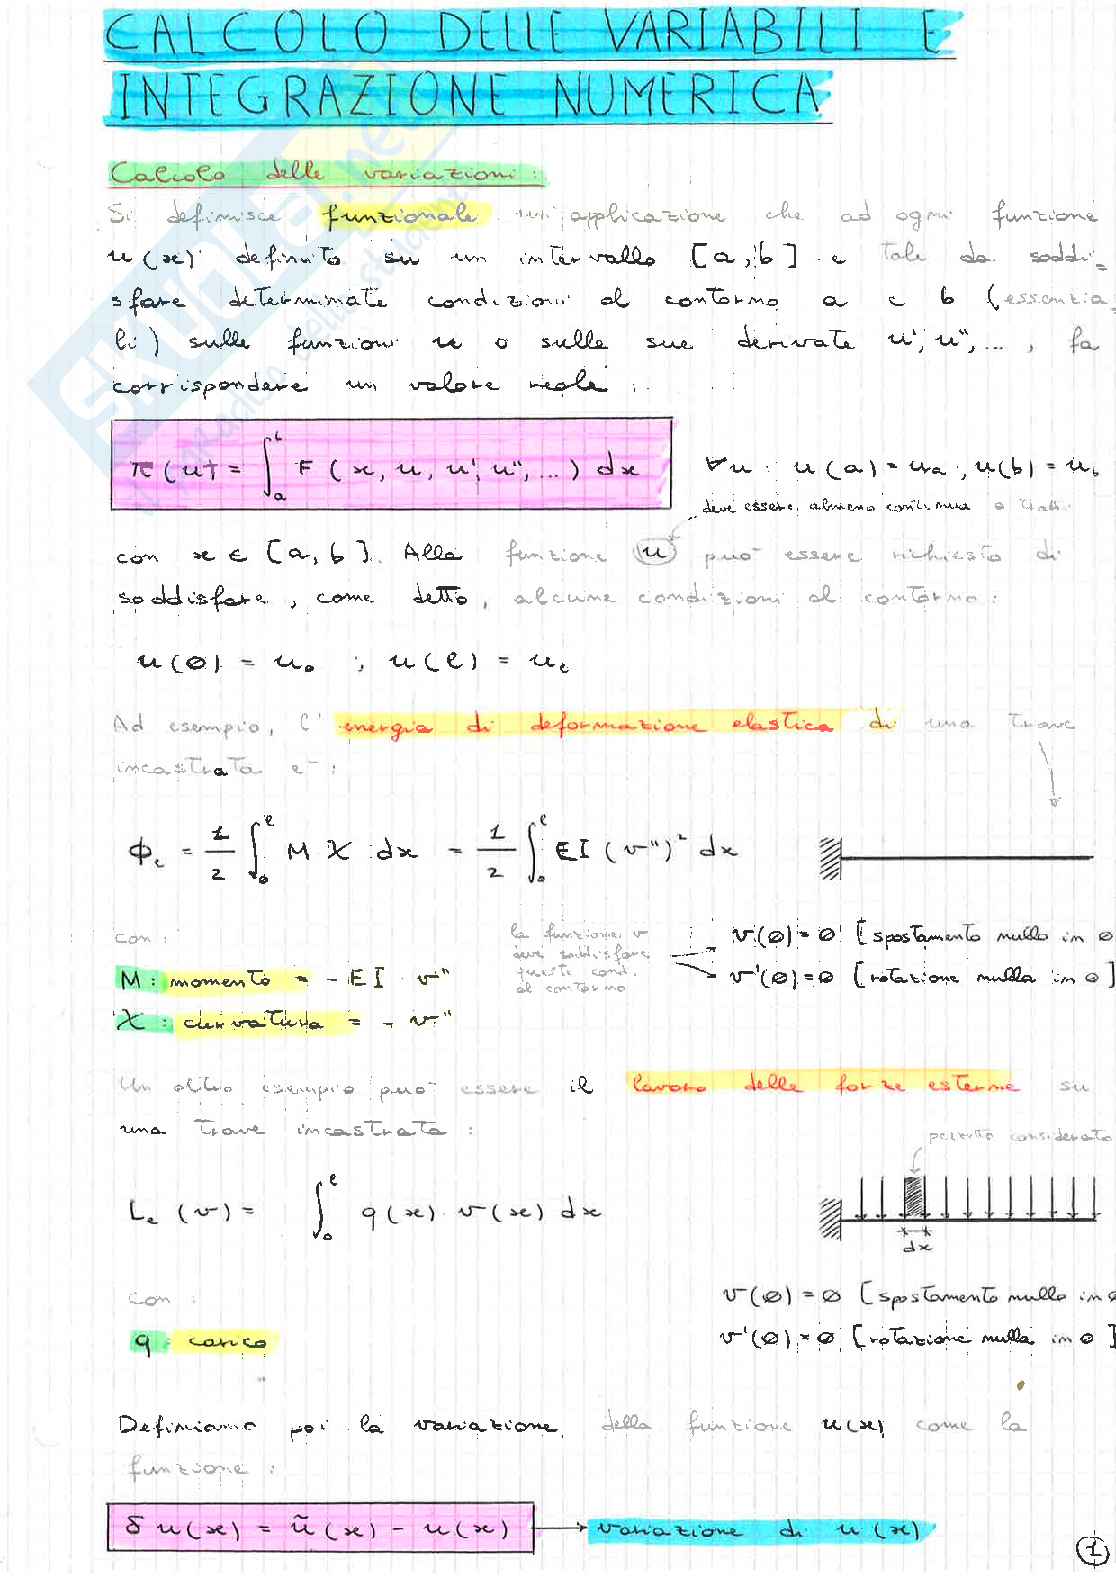 CALCOLO DELLE VARIABILI E
INTEGRAZIONE NUMERICA
Calcolo delle variazioni:
Si definisce funzionale un'applicazione che ad ogni funzione
u(x) definito su un intervallo [a,b] e tale da soddi-
sfare determinate condizioni al contorno a e b (essenzia
li) sulle funzioni u o sulle sue derivate u', u'',..., fa
corrispondere un valore reale:
π(u) = ∫_a^b F (x, u, u', u'', ...) dx ∀u : u(a) = u_a ; u(b) = u_b
deve essere almeno continua a tratti
con x ∈ [a,b]. Alla funzione u può essere richiesto di
soddisfare, come detto, alcune condizioni al contorno:
u(0) = u_0 ; u(l) = u_l
Ad esempio, l'energia di deformazione elastica di una trave
incastrata è:
v
Φ_e = 1/2 ∫_0^l M χ dx = 1/2 ∫_0^l EI (v'')² dx
con:
la funzione v
deve soddisfare
queste cond.
al contorno
v(0) = 0 [spostamento nullo in 0
v'(0) = 0 [rotazione nulla in 0]
M: momento = - EI v''
χ: curvatura = - v''
Un altro esempio può essere il lavoro delle forze esterne su
una trave incastrata:
pezzetto considerato
L_e (v) = ∫_0^l q(x) v(x) dx
dx
con:
v(0) = 0 [spostamento nullo in 0
q: carico
v'(0) = 0 [rotazione nulla in 0]
Definiamo poi la variazione della funzione u(x) come la
funzione:
δ u(x) = ũ(x) - u(x) → variazione di u(x)
1